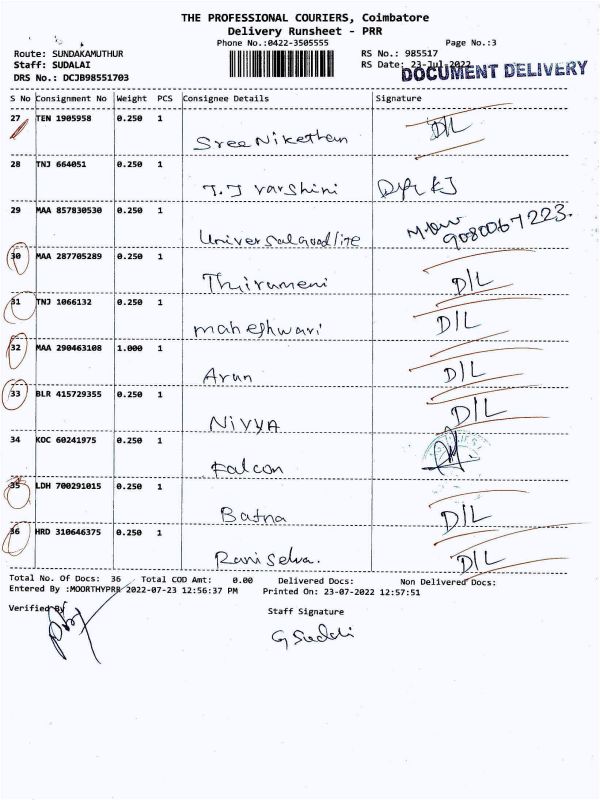 THE PROFESSIONAL COURIERS, Coimbatore
Delivery Runsheet - PRR
Phone No.:0422-3505555 Page No.:3
Route: SUNDAKAMUTHUR RS No.: 985517
Staff: SUDALAI RS Date: 23-Jul-2022
DOCUMENT DELIVERY
DRS No.: DCJB98551703
S No Consignment No Weight PCS Consignee Details Signature
27 TEN 1905958 0.250 1 Sree Nikethan D/L
28 TNJ 664051 0.250 1 T.J varshini
29 MAA 857830530 0.250 1 Universal goodlife 9080067223.
30 MAA 287705289 0.250 1 Thirumeni D/L
31 TNJ 1066132 0.250 1 maheshwari D/L
32 MAA 290463108 1.000 1 Arun D/L
33 BLR 415729355 0.250 1 NivyA D/L
34 KOC 60241975 0.250 1 Falcon
35 LDH 700291015 0.250 1 Batna D/L
36 HRD 310646375 0.250 1 Rani Selva. D/L
Total No. Of Docs: 36 Total COD Amt: 0.00 Delivered Docs: Non Delivered Docs:
Entered By :MOORTHYPRR 2022-07-23 12:56:37 PM Printed On: 23-07-2022 12:57:51
Verified By Staff Signature